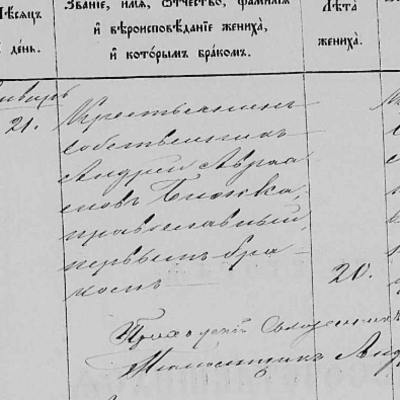 Мѣсяцъ
день.
Званіе, имя, отчество, фамилія
и вѣроисповѣданіе жениха,
и которымъ бракомъ.
Лѣта
жениха.
Январь
21.
Крестьянинъ
собственникъ
Андрей Авраа
мовъ
православный,
первымъ бра-
комъ
20.
Приходскій Священникъ